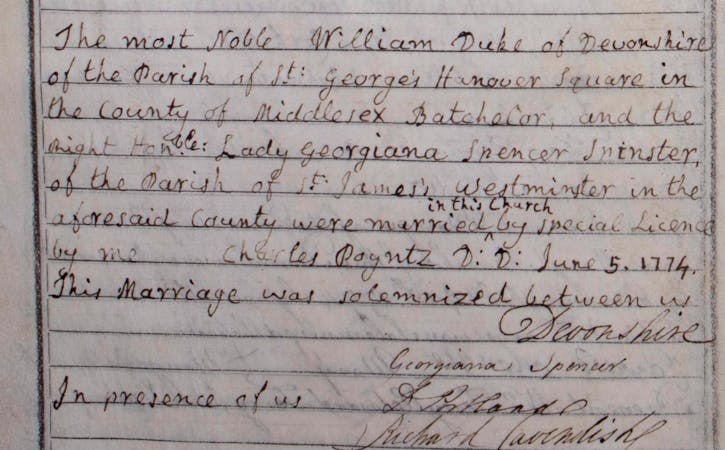 The most Noble William Duke of Devonshire
of the Parish of St: George's Hanover Square in
the County of Middlesex Batchelor, and the
right Honble: Lady Georgiana Spencer Spinster,
of the Parish of St. James's Westminster in the
in this Church
aforesaid County were married ^ by special Licence
by me Charles Poyntz D: D: June 5. 1774.
This Marriage was solemnized between us
Devonshire
Georgiana Spencer
In presence of us Portland
Richard Cavendish